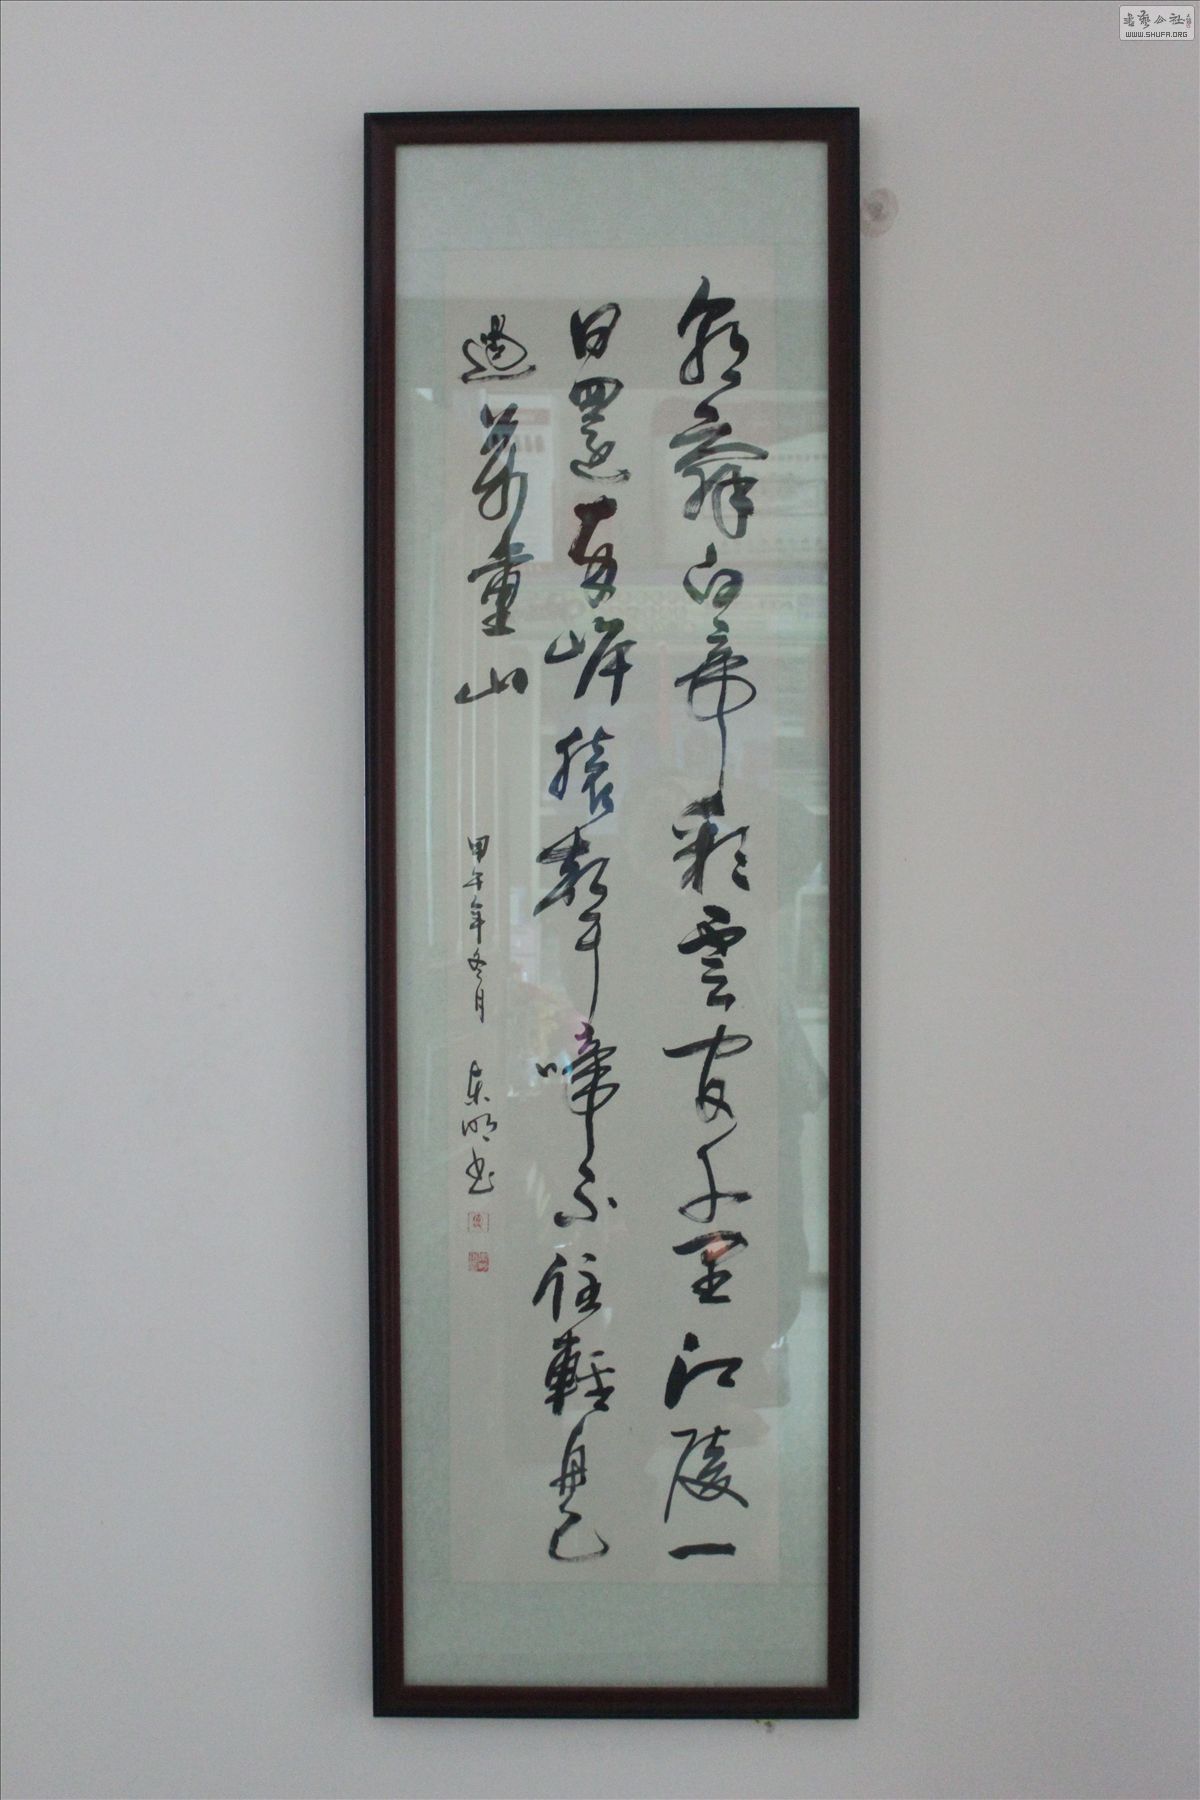 朝辭白帝彩雲間千里江陵一
日還兩岸猿聲啼不住輕舟已
過萬重山
甲午年冬月
明书
书艺公社
WWW.SHUFA.ORG